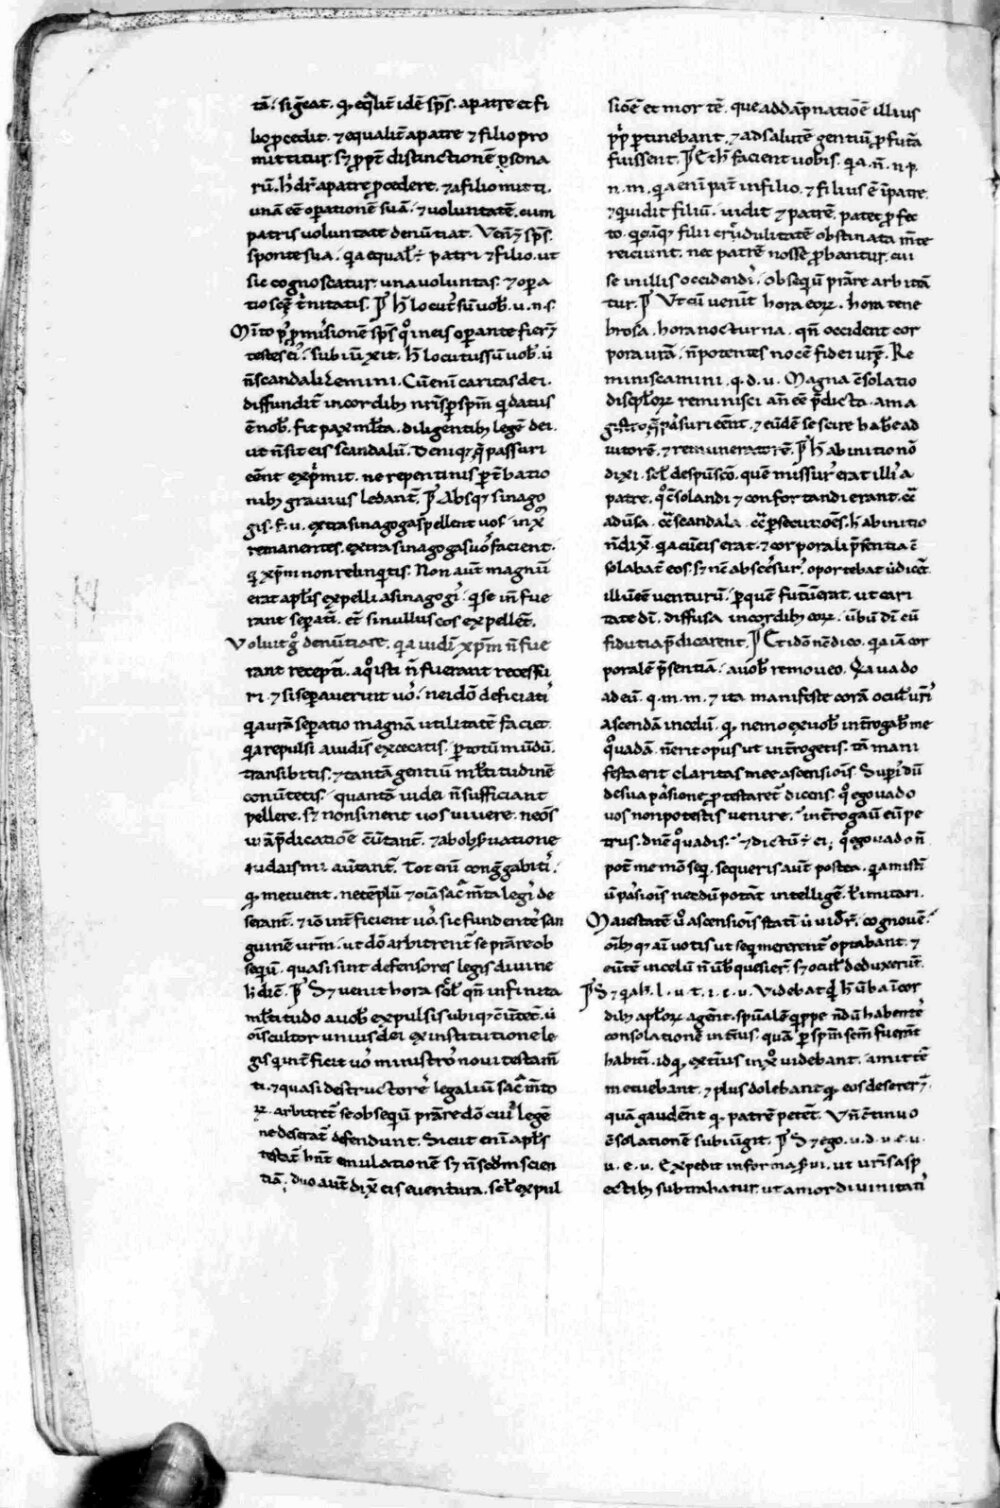 tā. siḡeat. qꝛ eqͣlit̄ idē sp̄s. a patre et fi
lio ꝓcedit. ⁊ equalit̄ a patre ⁊ filio pro
mittitur. sꝫ ꝓpt̄ distinctionē ꝑsona
rū. h̄ dr̄ a patre ꝓcedere. ⁊ a filio mitti.
unā eē oꝑationē suā. ⁊ uoluntatē. cum
patris uoluntate denūtiat. Venꝫ sp̄s.
sponte sua. qͥa equal̄ ÷ patri ⁊ filio. ut
sic cognoscatur. una uoluntas. ⁊ oꝑa
tio seqͥ t̄nitatis. h̄ locut̾ sū uob̄. u. n. s.
M̄ito p̾ ꝓmisionē sp̄s qͦ in eis oꝑante fier̄
testes ei̾. subiūxit. h̄ locutus sū uob̄. ū
n̄ scandalizemini. Cū enī caritas dei.
diffundit̄ in cordibꝫ nr̄is ꝑ sp̄m qͥ datus
ē nob̄. fit pax ml̄ta. diligentibꝫ legē dei.
ut n̄ sit eis scandalū. Deniqꝫ qͤ passuri
eēnt exp̄mit. ne repentinis ꝑt̄batio
nibꝫ grauius ledant̄. Absqꝫ sinago
gis. f. u. extra sinagogas pellent uos. in xͦ
remanentes. extra sinagogas uo̾ facient.
qͥ xp̄m non relinqͥtis. Non aut̄ magnū
erat apl̄is expelli a sinagogi̾. qͥ se in̄ fue
rant seꝑati. et̄ si nullus eos expellet̄.
Voluit gͦ denūtiare. qͥa iudi̾ xp̄m n̄ fue
rant recepti̾. a qͦ isti n̄ fuerant recessu
ri. ⁊ si seꝑauerunt uo̾. ne idō deficiati̾
qͥa urā seꝑatio magnā utilitatē faciet.
qͥa repulsi a iudēis excecatis. ꝑ totū mūdū.
transibitis. ⁊ tantā gentiū ml̄titudinē
conūtetis. quantō uidei n̄ sufficiant
pellere. sꝫ non sinent uos uiuere. ne oēs
ur̄a p̄dicatiōe cūtant̄. ⁊ ab obs̄uatione
iudaismi. aūtant̄. Tot enī cong̾gabiti̾.
qꝛ metuent. ne tēplū ⁊ oīa sac̾m̄ta legi̾ de
serant̄. ⁊ iō int̄ficient uo̾. sic fundente̾ san
guinē ur̄m. ut dō arbitrent̄ se p̄stare ob
sequiū. quasi sint defensores legis diuine
h̄ dic̄. Sꝫ uenit hora. scil̄ qn̄ infinita
ml̄titudo a uob̄ expulsis ubiqꝫ cūtet̄. ū
oīs cultor unius dei ex institutione le
gis qͥ int̄ficit uo̾ ministro̾ noui testam̄
ti. ⁊ quasi destructore̾ legaliū sac̾m̄to
ꝝ. arbitret̄ se obsequiū p̄stare dō cui̾ legē
ne deserat̄ defendunt. Sicut enī apl̄s
testat̄ hn̄t emulationē sꝫ n̄ scdm scien
tiā. Duo aut̄ dix̄ eis euentura. scil̄ expul
sionē et mortē. que ad dāpnationē illius
pp̄li ꝑtinebant. ⁊ ad salutē gentiū ꝓfutā
fuissent. Et h̄ facient uobis. qͥa n̄. n. p.
n. m. qͥa enī pat̄ in filio. ⁊ filius ē ī patre.
⁊ qui uidit filiū. uidit ⁊ patrē. patet ꝓfec
to. qͥcūqꝫ filii crudulitatē obstinata m̄te
reiciunt. nec patrē nosse ꝓbantur. cui
se in illis occidendi̾. obsequiū p̄stare arbitā
tur. Vt cū uenit̄ hora eoꝝ. hora tene
brosa. hora nocturna. qn̄ occident cor
pora urā. n̄ potentes nocē fidei ur̄ę. Re
miniscamini. q. d. u. Magna c̄solatio
discipl̄oꝝ reminisci an̄ eē p̄dicta. a ma
gistro qͤ pa̾suri eēnt. ⁊ eūdē se scire habē ad
iutorē. ⁊ remuneratorē. h̄ ab initio nō
dixi. scil̄ de sp̄u scō. quē missur̾ erat illi̾ a
patre. qͥ c̄solandi ⁊ confortandi erant. cͣ
aduersa. cͣ scandala. cͣ ꝑsecutiōes. h̄ ab initio
n̄ dix̄. qͥa cū eis erat. ⁊ corporali p̄sentia c̄
solabat̄ eos. sꝫ nē abscēsur̾. oportebat ūdicēt
illū eē uenturū. ꝑ quē futurū erat. ut cari
tate di̅. diffusa in cordibꝫ eoꝝ. ūbū di̅ cū
fidutia p̄dicarent. Et idō nē dico. qͥa iā cor
poralē p̄sentiā. a uob̄ remoueo. Qͥa uado
ad eū. q. m. m. ⁊ ita manifeste corā oculi̾ ur̄i̾
ascendā in celū. qꝛ nemo ex uob̄ int̄rogab̄ me
qͦ uadā. n̄ erit opus ut int̄rogetis. tā mani
festa erit claritas mee ascensiōis. Superi̾ dū
de sua passione ꝓtestaret̄ dicens. qͦ ego uado
uos non potestis uenire. int̄rogauit eū pe
trus. dnē quo uadis. ⁊ dictū ÷ ei. qͦ ego uado n̄
pot̄ me mō seqͥ. sequeris aut̄ postea. qͥa misti̾
ū pa̾siois necdū potāt intelligē. t̄ imitari.
Maiestatē uͦ ascensiōis statī ū uider̄. cognouē.
oībꝫ qꝫ aī uotis ut seqͥ mererent̄ optabant. ⁊
eūtē in celū n̄ ūb̄ quesier̄. sꝫ ocul̄ deduxerūt.
Sꝫ qͥa h̄. l. u. t. i. c. u. Videbat qͥ h̄ ūba ī cor
dibꝫ apl̄oꝝ agēnt. spūalē qͥppe n̄dū habente̾
consolationē int̾ius. quā ꝑ sp̄m sc̄m fuerāt
habiti̾. id qꝫ ext̾ius in xͦ uidebant. amitte̾
metuebant. ⁊ plus dolebant qꝛ eos desereret̄.
quā gaudēnt qꝛ patrē petet̄. Vn̄ c̄tinuo
c̄solationē subiūgit. Sꝫ ego. u. d. u. e. u.
u. e. u. Expedit in forma s̾ui. ut ur̄is asp
ectibꝫ subtrahatur. ut amor diuinitati̾